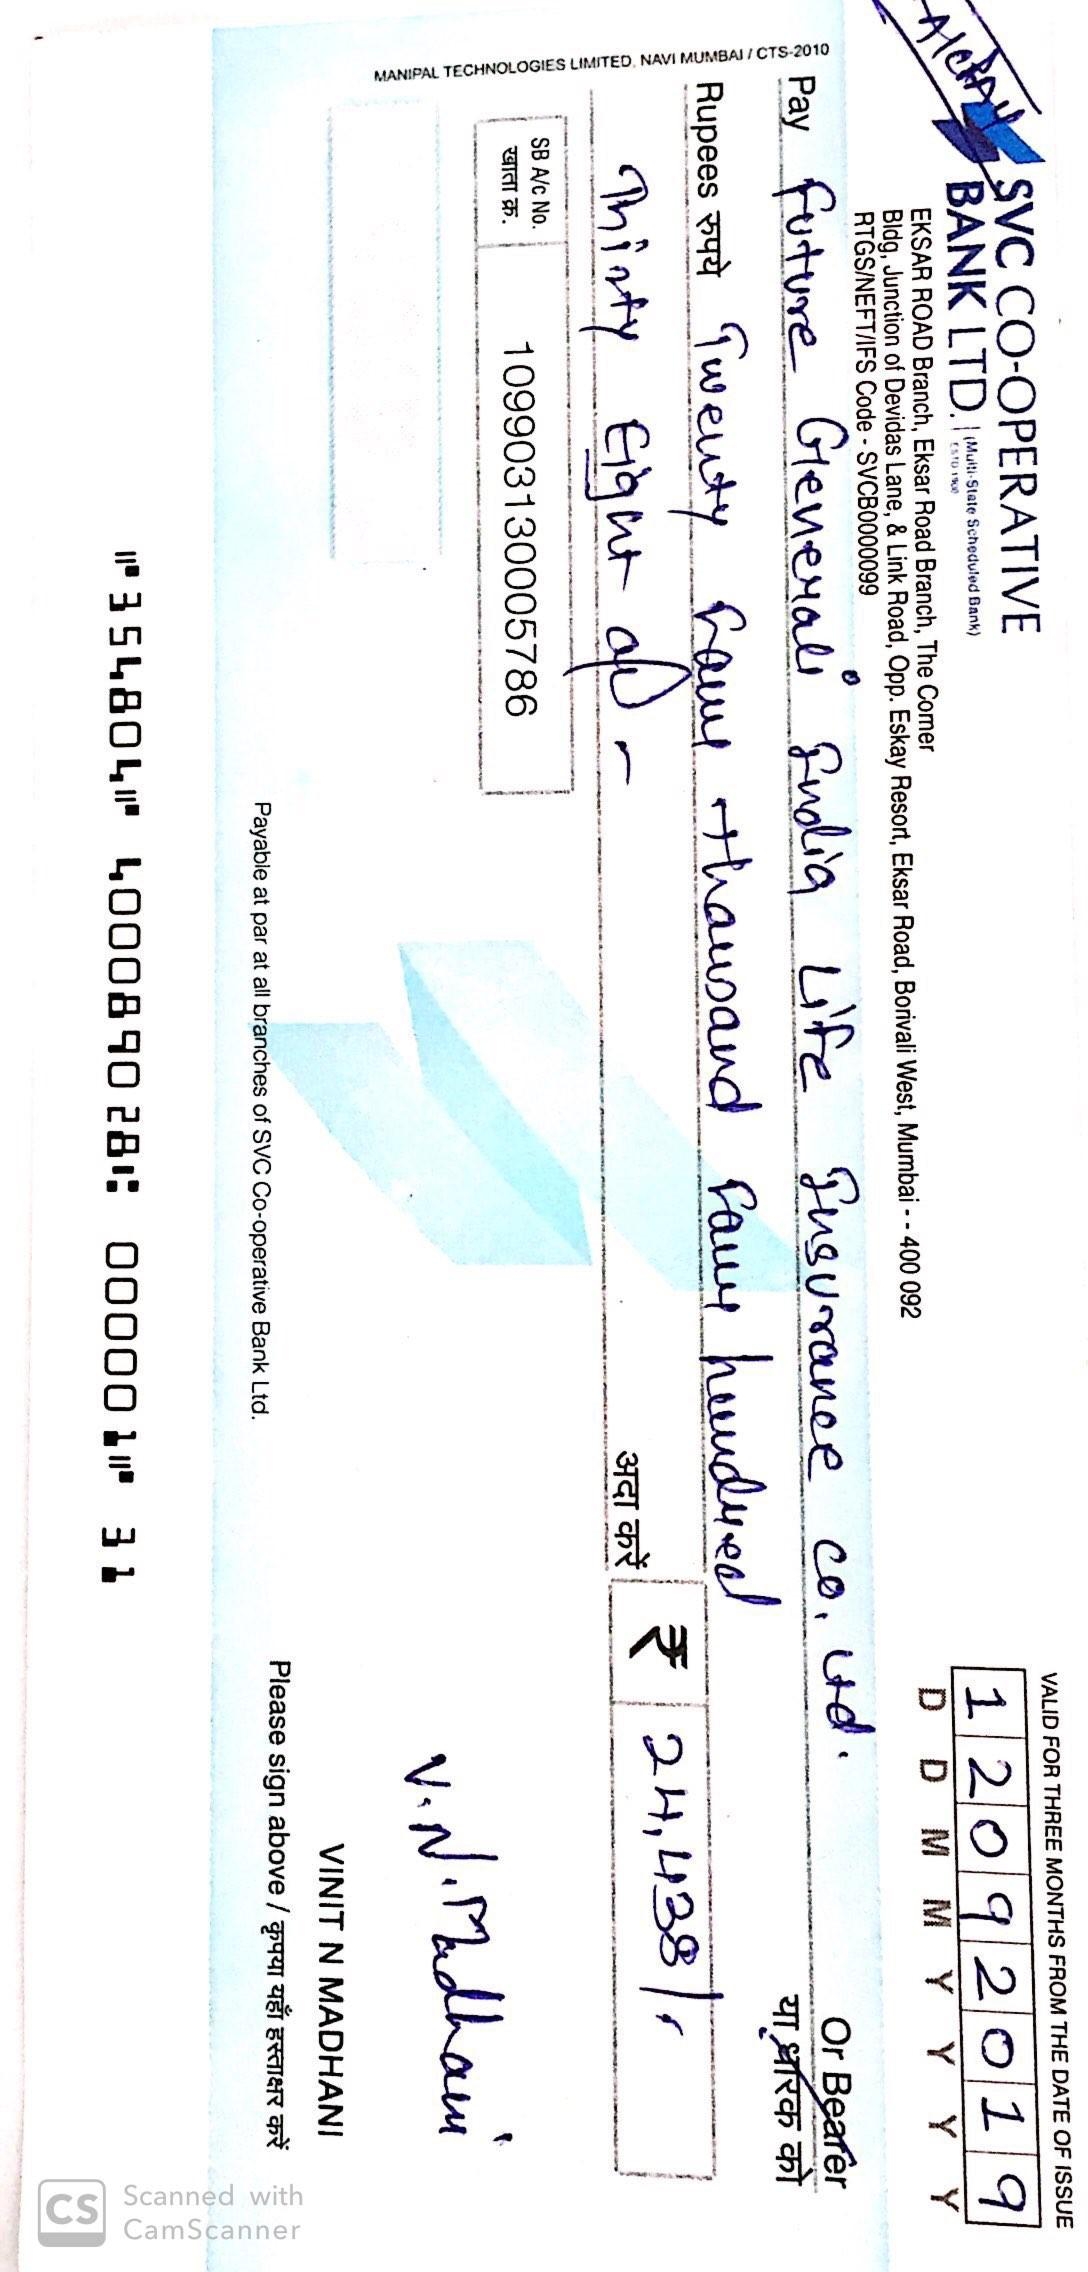 A/C PAY
SVC CO-OPERATIVE
BANK LTD. (Multi-State Scheduled Bank)
ESTD 1906
EKSAR ROAD Branch, Eksar Road Branch, The Corner
Bldg, Junction of Devidas Lane, & Link Road, Opp. Eskay Resort, Eksar Road, Borivali West, Mumbai - - 400 092
RTGS/NEFT/IFS Code - SVCB0000099
VALID FOR THREE MONTHS FROM THE DATE OF ISSUE
1 2 0 9 2 0 1 9
D D M M Y Y Y Y
Pay Future Generali India Life Insurance co. Ltd.
Or Bearer
या धारक को
Rupees रुपये Twenty Four thousand Four hundred
Thirty Eight only -
अदा करें
₹ 24,438/-
SB A/c No.
खाता क्र.
109903130005786
V. N. Madhani
VINIT N MADHANI
Please sign above / कृपया यहाँ हस्ताक्षर करें
Payable at par at all branches of SVC Co-operative Bank Ltd.
MANIPAL TECHNOLOGIES LIMITED, NAVI MUMBAI / CTS-2010
⑈354804⑈ 400089028⑆ 000001⑈ 31
CS
Scanned with
CamScanner